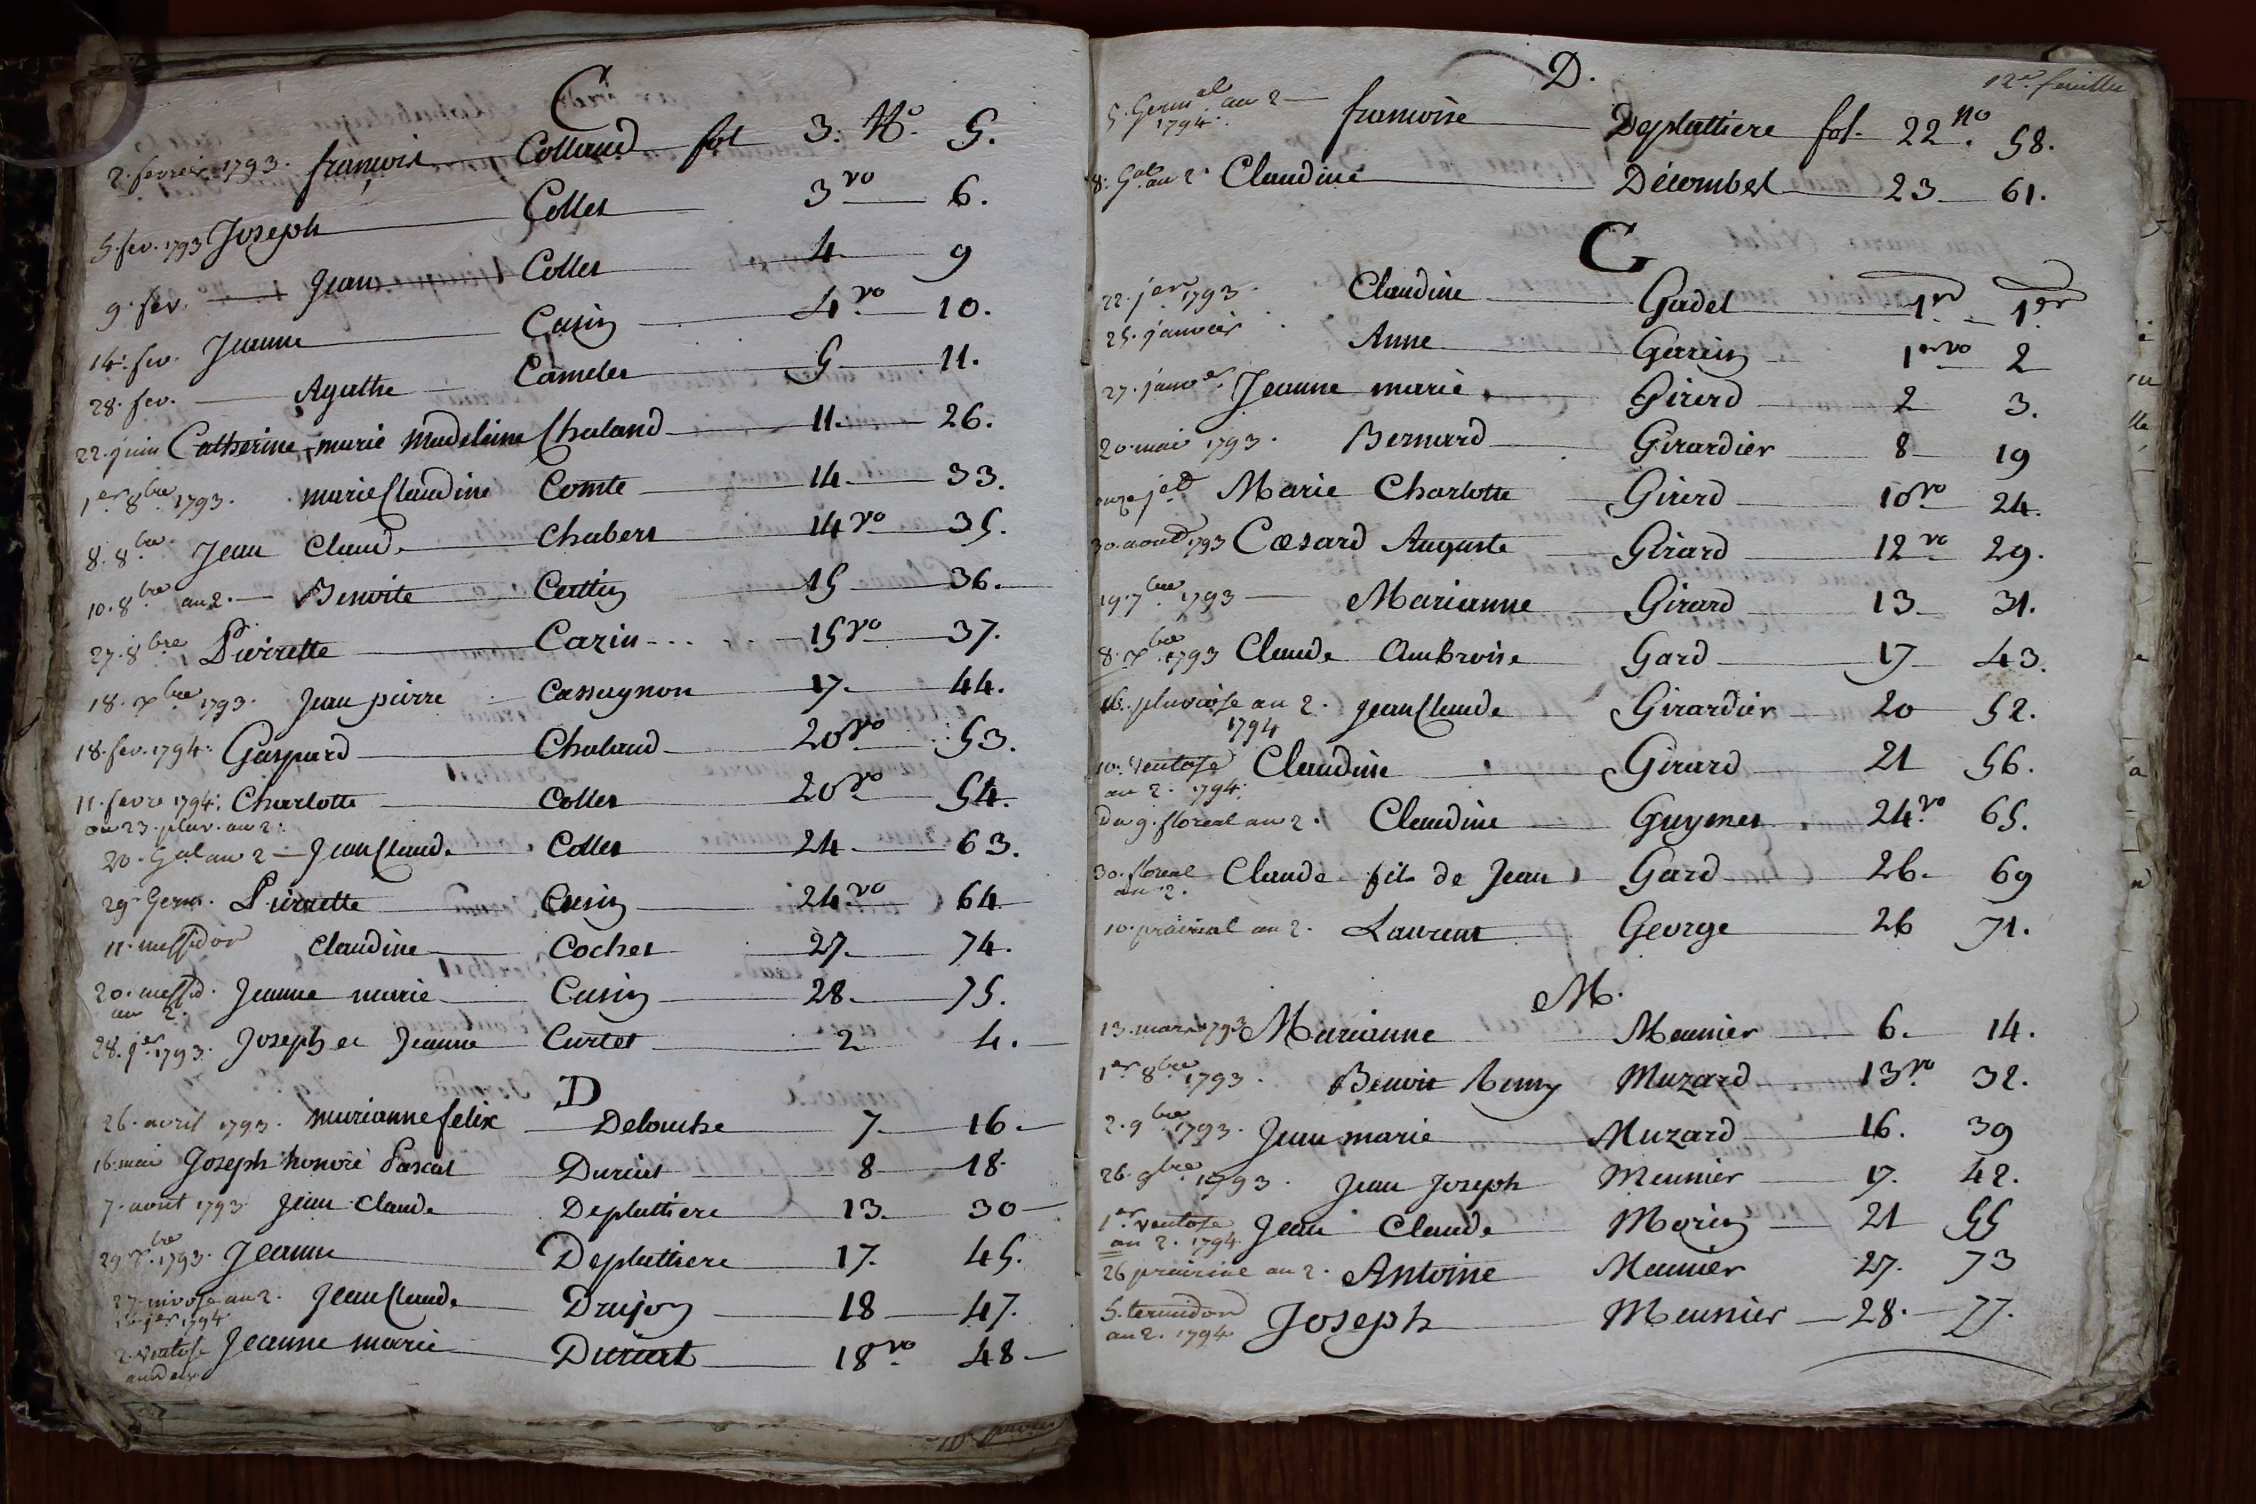 C
2. fevrier 1793. françois Colland fol 3. N.o 5.
5. fev. 1793 Joseph Collet 3 vo 6.
9. fev. Jean Collet 4 9
14. fev. Jeanne Cusin 4. vo 10.
28. fev. Agathe Camelet 5 11.
22. juin Catherine marie Madeleine Chaland 11. 26.
1.er 8.bre 1793. marie Claudine Comte 14. 33.
8. 8.bre Jean Claude Chabert 14 vo 35.
10. 8.bre an 2. Benoite 15 36.
27. 8bre Pierrette Cazin 15 vo 37.
18. xbre 1793. Jean pierre Cassagnon 17. 44.
18. fev. 1794. Gaspard Chaland 20 vo 53.
11. fevre 1794. Charlotte Collet 20 vo 54.
ou 23. pluv. an 2.
20. Gal an 2 Jean Claude Collet 24 63.
29 Germ. Pierrette Cusin 24. vo 64
11. messidor Claudine Cochet 27. 74.
20. messid. Jeanne marie Cusin 28. 75.
an 2.
28. jer 1793. Joseph et Jeanne Curtet 2 4.
D
26. avril 1793. marianne felix Delouche 7 16
16. mai Joseph honoré Pascal Duriat 8 18
7. aout 1793 Jean Claude Deplattiere 13. 30
29 xbre 1793. Jeanne Deplattiere 17. 45.
27. nivose an 2. Jean Claude Drujon 18 47.
16. jer 1794
2. ventose Jeanne marie Duriat 18 vo 48
an deux
D.
12e feuille
5. Germal an 2 françoise Deplattiere fol 22. no 58.
1794.
8. Gal an 2. Claudine Décombet 23 61.
G
22. jer 1793. Claudine Gadel 1er 1er
25. janvier Anne Garin 1er vo 2
27. janver Jeanne marie Girerd 2 3.
20. mai 1793. Bernard Girardier 8 19
onze jet Marie Charlotte Girerd 10 vo 24.
30. aout 1793 Cæsard Auguste Girard 12 vo 29.
19. 7bre 1793 Marianne Girard 13 31.
8. xbre 1793 Claude Ambroise Gard 17 43.
16. pluviose an 2. Jean Claude Girardier 20 52.
1794
10. ventose Claudine Girard 21 56.
an 2. 1794.
du 9. floreal an 2. Claudine Guymet 24. vo 65.
30. floreal Claude fils de Jean Gard 26. 69
an 2.
10. prairial an 2. Laurent George 26 71.
M.
13. mars 1793 Marianne Meunier 6. 14.
1er 8bre 1793. Benoit Remy Muzard 13. vo 32.
2. 9bre 1793. Jean marie Muzard 16. 39
26. 9bre 1793. Jean Joseph Meunier 17. 42.
1er ventose Jean Claude Morin 21 55
an 2. 1794
26 prairial an 2. Antoine Meunier 27. 73
5. termidor Joseph Meunier 28. 77.
an 2. 1794